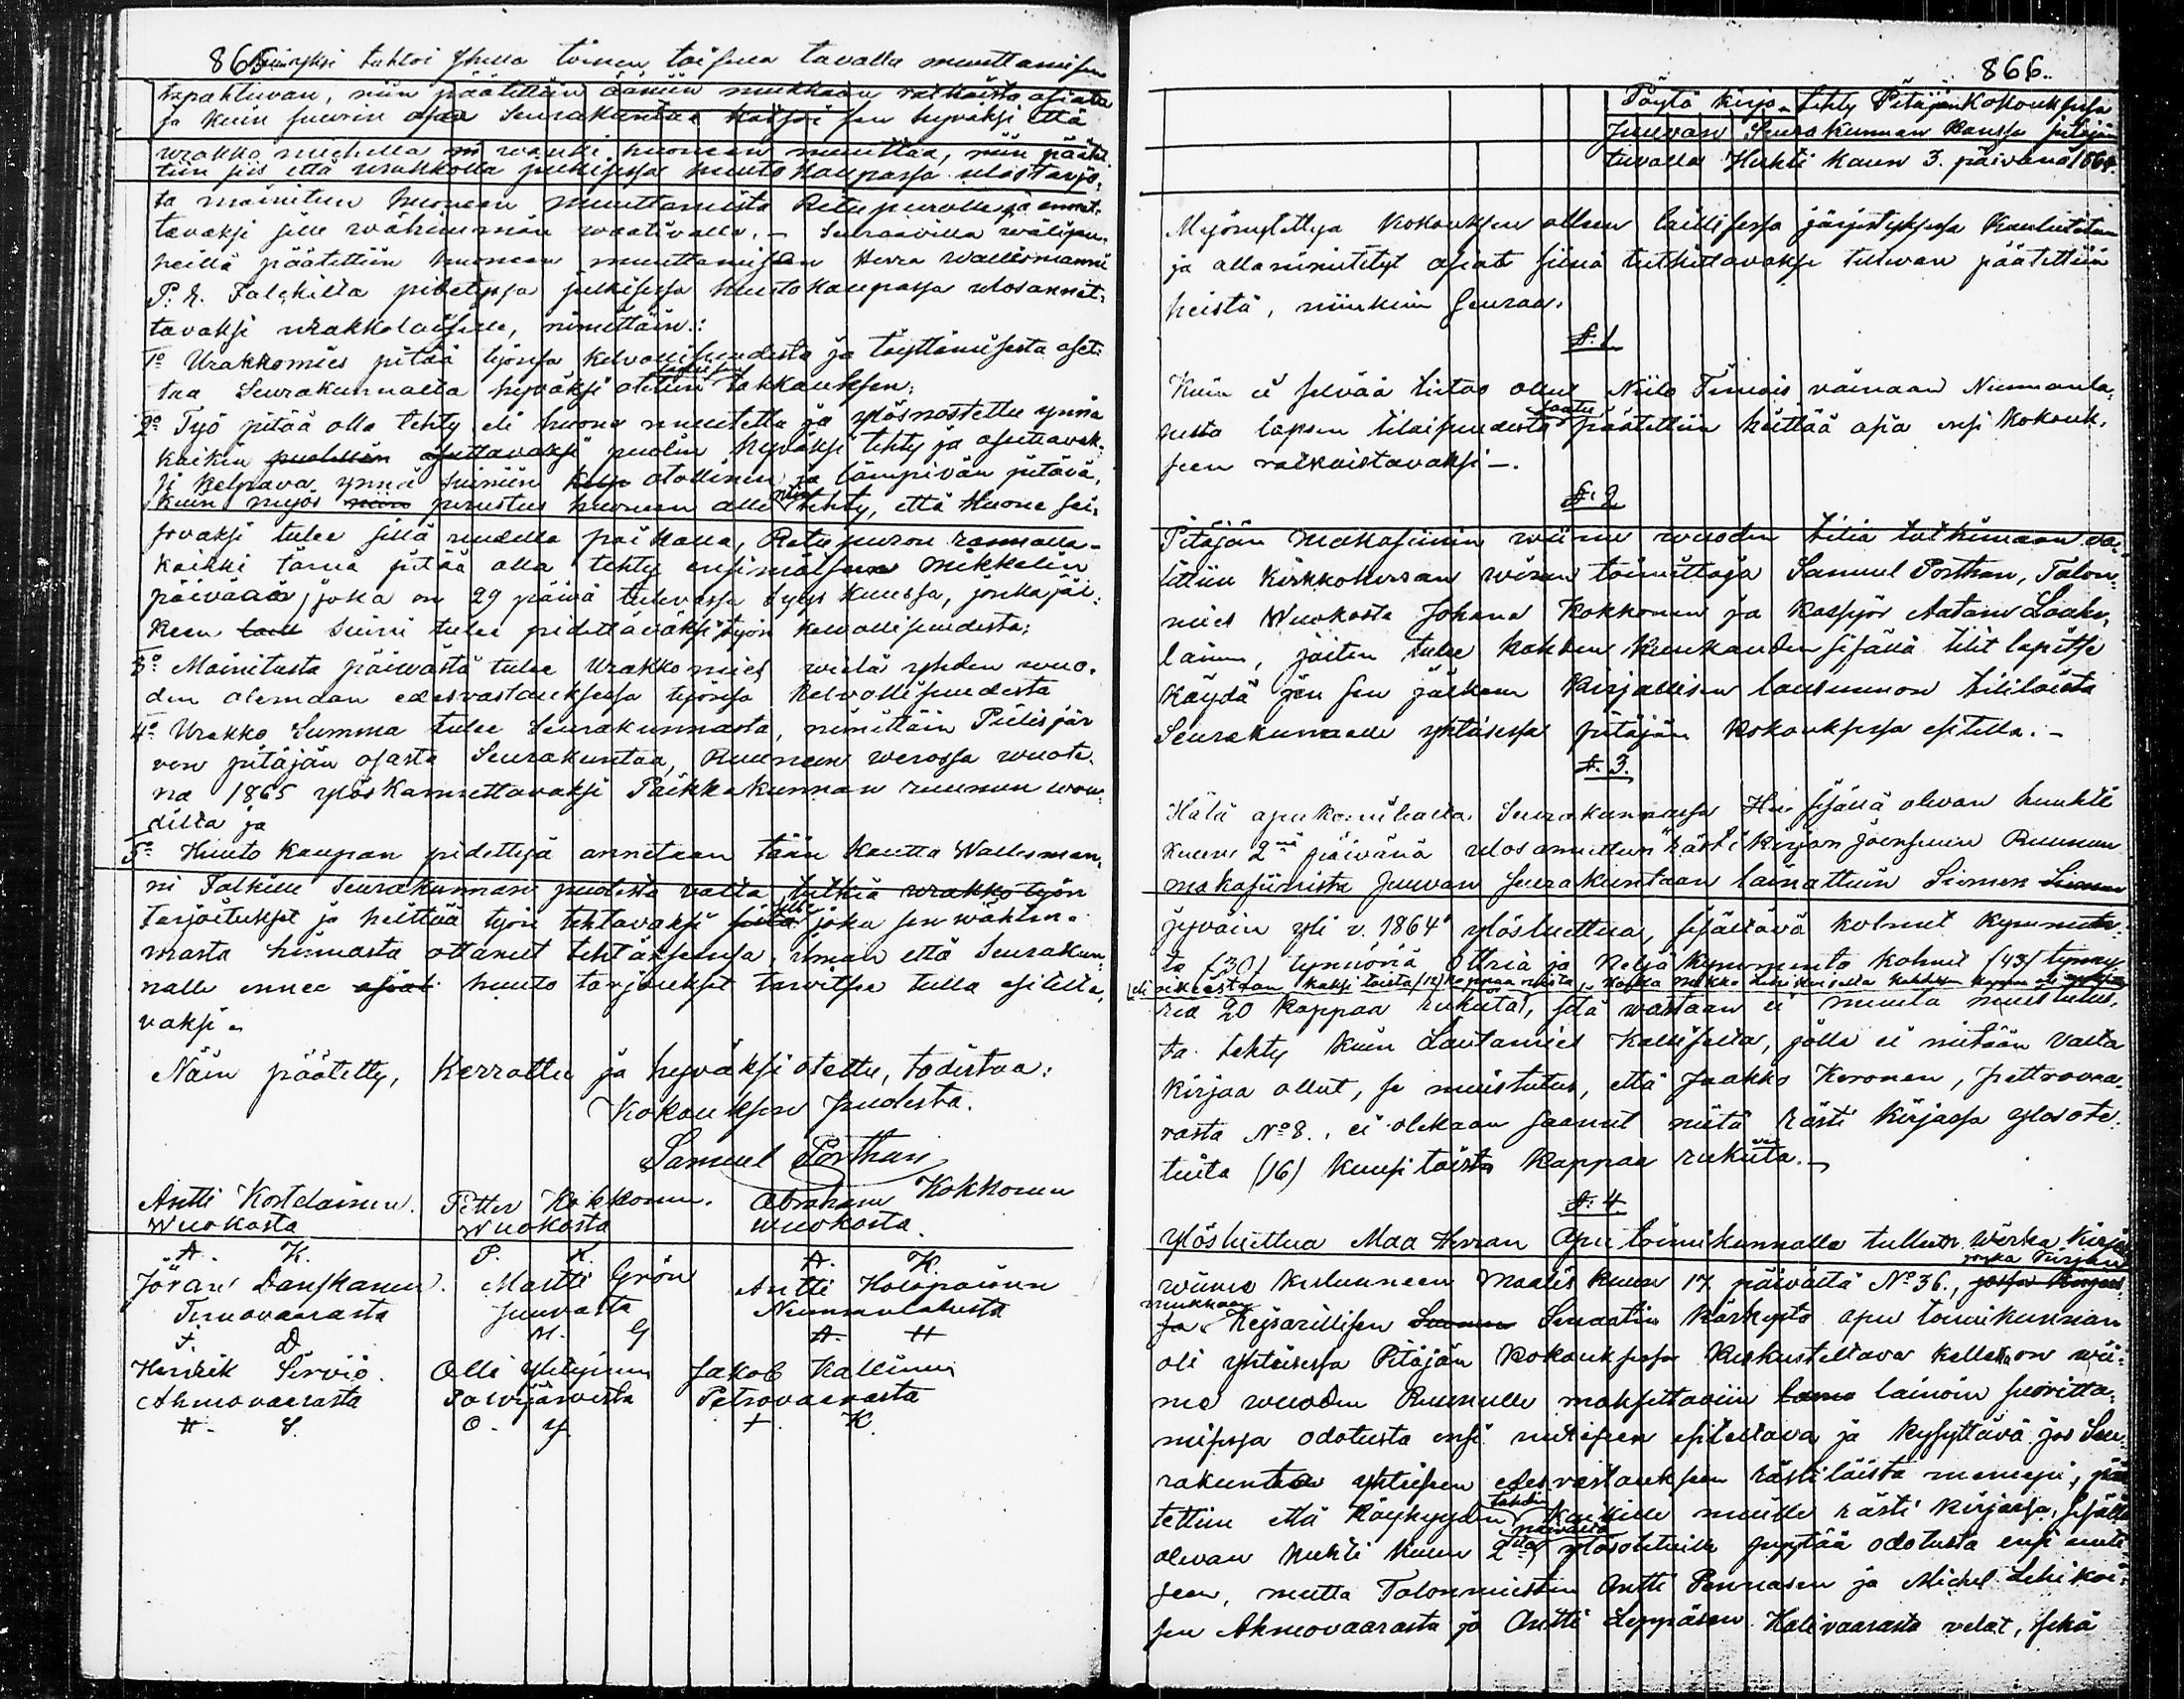 865
tahtoi yhellä toinen toisella tavalla muuttamisen
tapahtuvan, niin päätettiin äänien mukkaan ratkaista asiata
ja kuin suurin osa Seurakuntaa katsoi sen hyväksi että
urakka miehellä wanki huoneen muuttaa, niin päätet-
tiin siis että urakkolla julkisessa huuto kaupassa ulostarjo-
ta mainitun huoneen muuttamista Retupurolle ja annet-
tavaksi sille wähimmän waativalle. – Seuraavilla wälipu-
heilla päätettiin huoneen muuttamisen Herra wallesmanni
P. E. Falckilta pidetyssä julkisessa huutokaupassa ulosannet-
tavaksi urakkolaiselle, nimittäin:
1o Urakkomies pitää työnsä kelvollisuudesta ja täyttämisestä aset-
taa Seurakunnalta hyväksi otetun takkauksen;
2o Työ pitää olla tehty eli huone muutettu ja ylösnostettu ynnä
kaikin puolin hyväksi tehty ja asuttavak-
si kelpaava ynnä Suiniin otollinen ja lämpivän pitävä,
kuin myös perustus huoneen alle niin tehty, että Huone sei-
sovaksi tulee sillä uudella paikalla, Retupuron rannalla –
kaikki tämä pitää olla tehty ensimäiseen Mikkelin
päivään, joka on 29 päivä tulevassa Syys kuussa, jonka jäl-
keen Suini tulee pidettäväksi työn kelvollisuudesta;
3o Mainitusta päivästä tulee Urakkomies wielä yhden wuo-
den olemaan edesvastauksessa työnsä kelvollisuudesta
4o Urakko Summa tulee Seurakunnasta, nimittäin Pielisjär
ven pitäjän osasta Seurakuntaa, Ruunun werossa wuote-
na 1865 ylöskannettavaksi Paikkakunnan ruunun wou-
dilta ja
5o Huuto kaupan pidettyä annetaan tään kautta Wallesman-
ni Falkille Seurakunnan puolesta valta tutkia urakko työn
tarjoitukset ja heittää työn tehtäväksi sille joka sen wähim-
mästä hinnasta ottanut tehtäksensä, ilman että Seurakun-
nalle ennee huuto tarjoukset tarvitsee tulla esitettä-
väksi.
Näin päätetty, kerrottu ja hyväksi otettu, todistaa:
Kokouksen puolesta.
Samuel Porthan
Antti Kostelainen. Petter Kokkonen. Abraham Kokkonen
Wuokosta Wuokosta Wuokosta.
A. K. P. K. A. K.
Jöran Danskanen. Martti Grön Antti Holopainen
Timovaarasta Juuvasta Nunnanlahesta
J. D. M. G A H
Henrik Sirviö. Olli Yletyinen Jakob Kallinen
Ahmovaarasta Polvijärvestä Petrovaarasta
H. S. O. Y. J. K.
866.
Pöytä kirja tehty Pitäjänkokouksessa
Juuvan Seurakunnan kanssa pitäjän
tuvalla Huhti kuun 3. päivänä 1864.
Myönnyttettyä kokouksen olleen laillisessa järjestyksessä kuulutetun
ja allanimitetyt asiat siinä tutkittavaksi tulevan päätettiin
heistä, niinkuin seuraa.
§. 1
Kuin ei selvää tietoa ollut Niilo Timois vainaan Nunnanla-
hesta lapsen tilaisuudesta saatu päätettiin heittää asia ensi kokouk-
seen ratkaistavaksi –.
§. 2
Pitäjän makasiinin wiime wuoden tiliä tutkimaan va-
littiin Kirkkoherran wiran toimittaja Samuel Porthan, Talon-
mies Wuokosta Johana Kokkonen ja kassöör Aatami Laaka-
lainen, joiten tulee kahden kuukauden sisällä tilit läpitse
käydä ja sen jälkeen kirjallisen lausunnon tililöistä
Seurakunnalle yhteisessä pitäjän kokouksessa esitellä. –
§. 3.
Hätä apu komitealta Seurakunnassa sisällä olevan huuhti
kuun 2nä päivänä ulosannettun rästi kirjan Joensuun Ruunun
makasiinista Juuvan Seurakuntaan lainattuin Siemen
jyväin yli v. 1864 ylösluettua, sisältävä kolmet kymmen-
tä (30) tynnöriä Ottria ja neljä kymmentä kolmet (43) tynny-
riä 20 kappaa rukiita, sitä wastaan ei muuta muistutus-
ta tehty kuin Lautamies Kallisella, jolla ei mitään valta
kirjaa ollut, se muistutus, että Jaakko Keronen, Pettrovaa-
rasta No 8., ei olekaan saanut niitä rästi kirjassa ylösote-
tuita (16) kuusitoista kappaa rukiita. –
§. 4
Ylösluettua Maa Herran Apu toimikunnalle tulleen wirka kirja
wiime kuluneen Maalis kuun 17 päivältä No 36., jonka kirjan
mukkaan Keisarillisen Senaatin käskystä apu toimikunnan
oli yhteisessä Pitäjän kokouksessa keskusteltava kellä on wii-
me wuoden Ruunulle maksettaviin lainoin suoritta-
misessa odotusta ensi uutiseen esiteltävä ja kysyttävä jos Seu-
rakunta yhteiseen edesvastaukseen rästilöistä menneepi, pää-
tettiin että köyhyyden tähden kaikille muille rästi kirjassa, sisällä
olevan Huhti kuun 2 päivältä ylösotetuille pyytää odotusta ensi uuti-
seen, mutta Talonmiesten Antti Pennasen ja Michel Lehikoi-
sen Ahmovaarasta ja Antti Leppäsen Halivaarasta velat, sekä